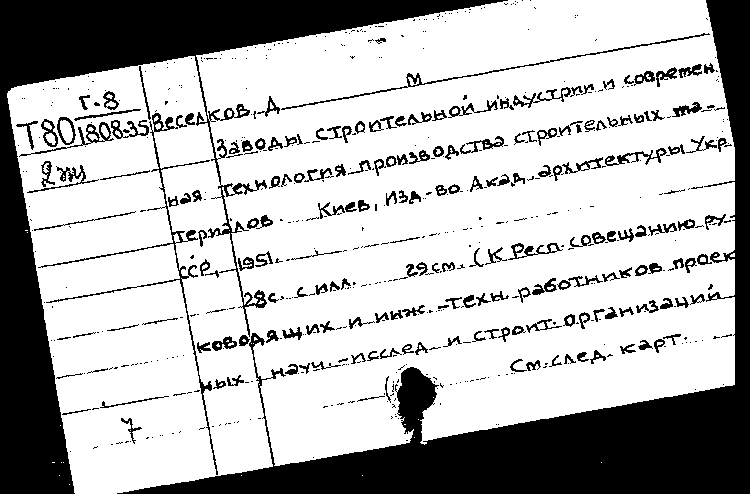 Г-8
Т80 1808-35
2 экз
Веселков, Д М
Заводы строительной индустрии и современ
ная технология производства строительных ма-
териалов. Киев, Изд-во Акад. архитектуры Укр
ССР, 1951.
28с. с илл. 29см. (К Респ. совещанию ру-
ководящих и инж.-техн. работников проек
ных, научн.-исслед и строит. организаций
См. след. карт.
7